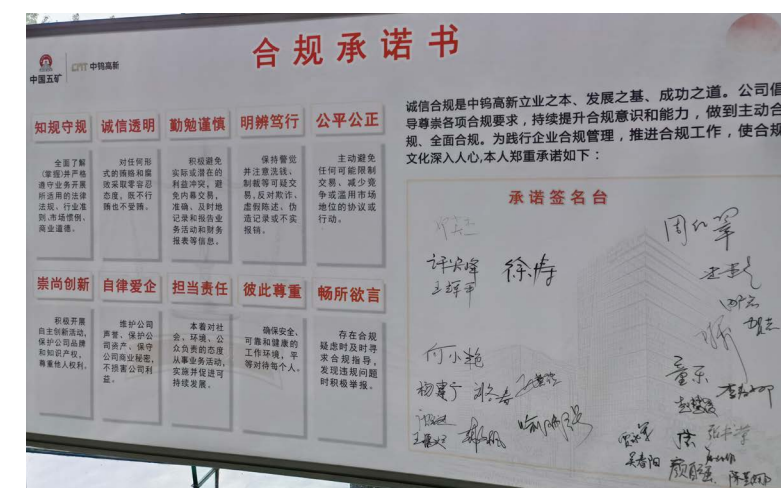 合规承诺书
中国五矿
中钨高新
知规守规
全面了解
(掌握)并严格
遵守业务开展
所适用的法律
法规、行业准
则、市场惯例、
商业道德。
诚信透明
对任何形
式的贿赂和腐
败采取零容忍
态度,既不行
贿也不受贿。
勤勉谨慎
积极避免
实际或潜在的
利益冲突,避
免内幕交易,
准确、及时地
记录和报告业
务活动和财务
报表等信息。
明辨笃行
保持警觉
并注意洗钱、
制裁等可疑交
易,反对欺诈、
虚假陈述、伪
造记录或不实
报销。
公平公正
主动避免
任何可能限制
交易、减少竞
争或滥用市场
地位的协议或
行动。
崇尚创新
积极开展
自主创新活动,
保护公司品牌
和知识产权,
尊重他人权利。
自律爱企
维护公司
声誉、保护公
司资产、保守
公司商业秘密,
不损害公司利
益。
担当责任
本着对社
会、环境、公
众负责的态度
从事业务活动,
实施并促进可
持续发展。
彼此尊重
确保安全、
可靠和健康的
工作环境,平
等对待每个人。
畅所欲言
存在合规
疑虑时及时寻
求合规指导,
发现违规问题
时积极举报。
诚信合规是中钨高新立业之本、发展之基、成功之道。公司倡
导尊崇各项合规要求,持续提升合规意识和能力,做到主动合
规、全面合规。为践行企业合规管理,推进合规工作,使合规
文化深入人心,本人郑重承诺如下:
承诺签名台
徐涛
何小艳
童东
吴春阳